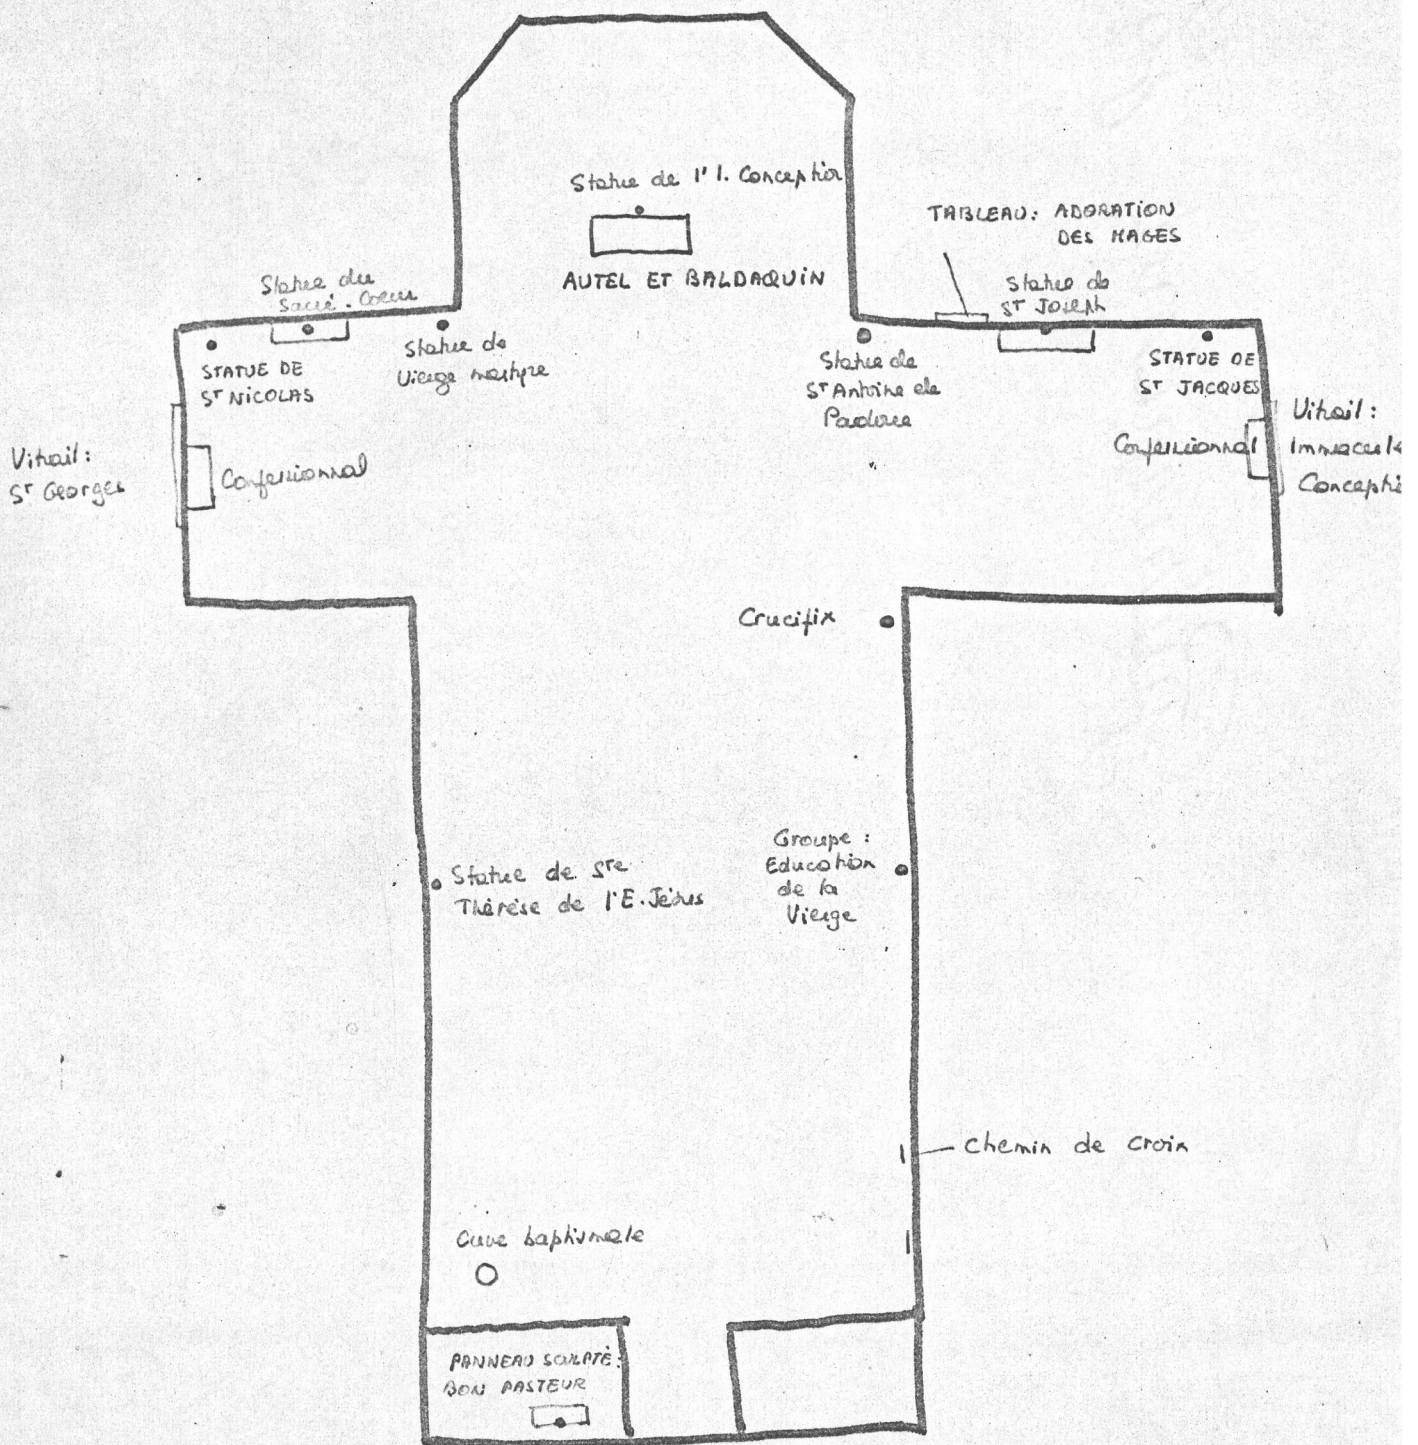 Statue de l'I. Conception
AUTEL ET BALDAQUIN
TABLEAU: ADORATION
DES MAGES
Statue du
Sacré-Coeur
Statue de
ST JOSEPH
STATUE DE
ST NICOLAS
Statue de
Vierge martyre
Statue de
ST Antoine de
Padoue
STATUE DE
ST JACQUES
Vitrail:
ST Georges
Confessionnal
Confessionnal
Vitrail:
Immaculé
Conceptio
Crucifix
Statue de Ste
Thérèse de l'E.Jésus
Groupe:
Education
de la
Vierge
Chemin de Croix
Cuve baptismale
PANNEAU SCULPTÉ:
BON PASTEUR